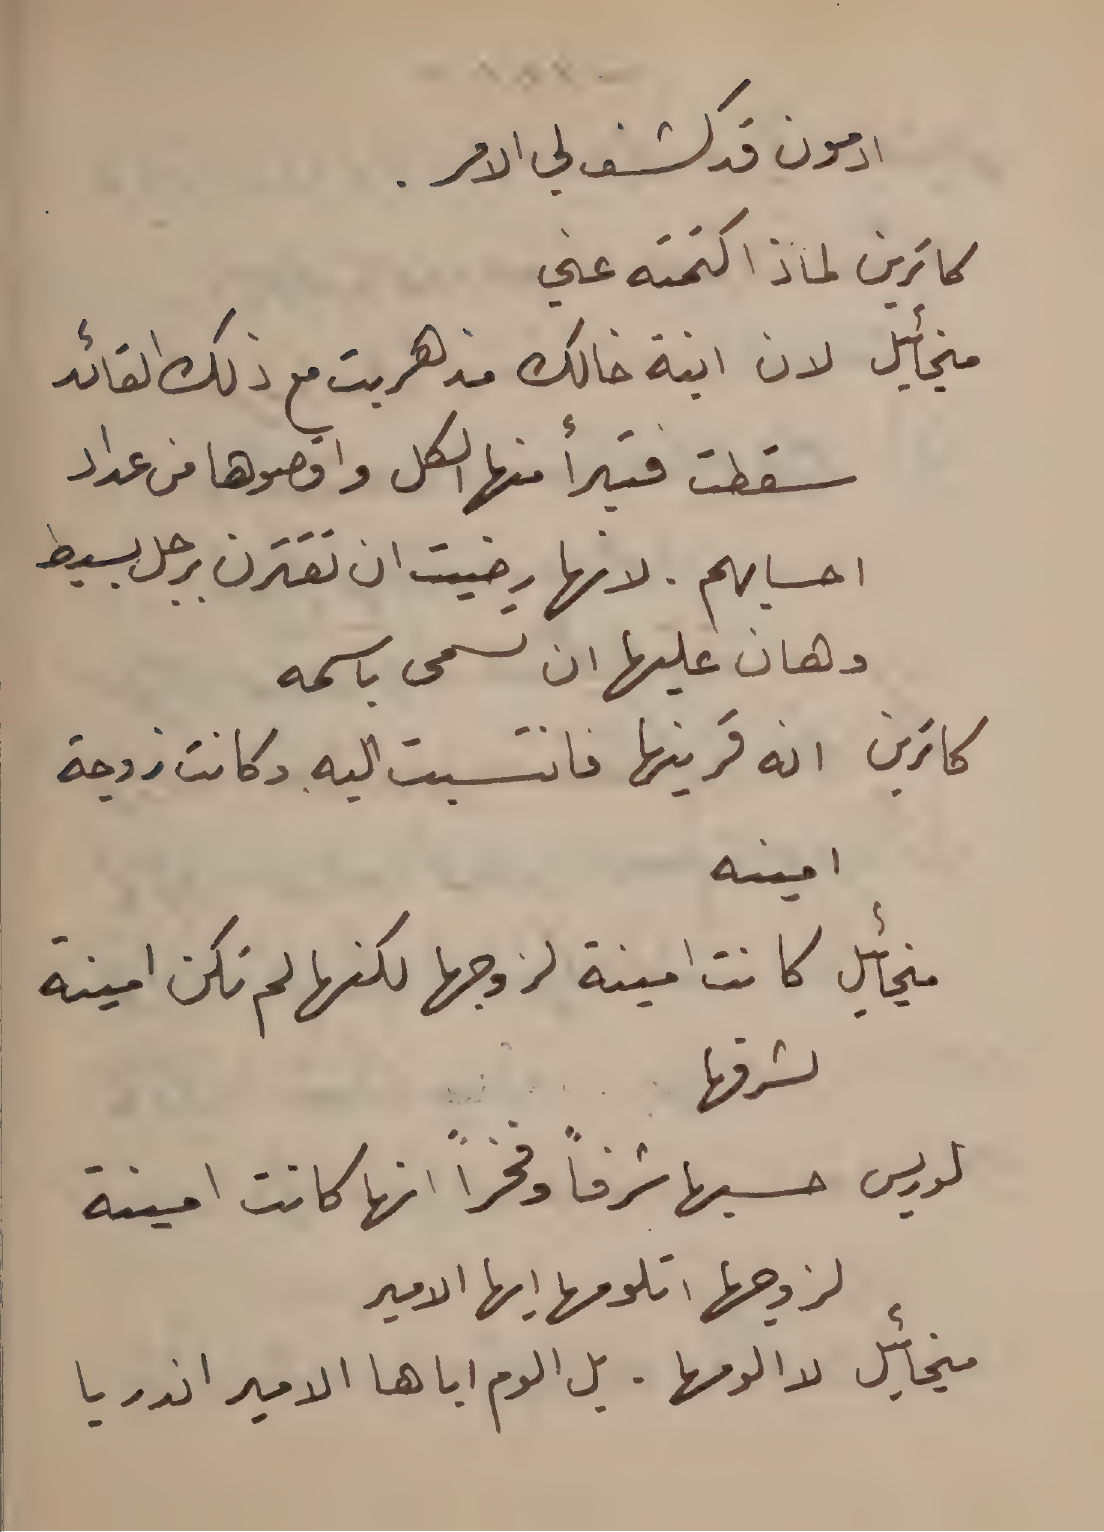 ادمون قد كشف لي الامر .
كاترين لماذا كتمته عني
ميخائيل لان ابنة خالك منذ هربت مع ذلك القائد
سقطت فتبرأ منها الكل واقصوها من عداد
احسابهم . لانها رضيت ان تقترن برجل بسيط
وهان عليها ان تسمى باسمه
كاترين انه قرينها فانتسبت اليه وكانت زوجة
امينه
ميخائيل كانت امينة لزوجها لكنها لم تكن امينة
لشرفها
لوريس حسبها شرفاً وفخراً انها كانت امينة
لزوجها اتلومها ايها الامير
ميخائيل لا الومها . بل الوم اباها الامير اندريا